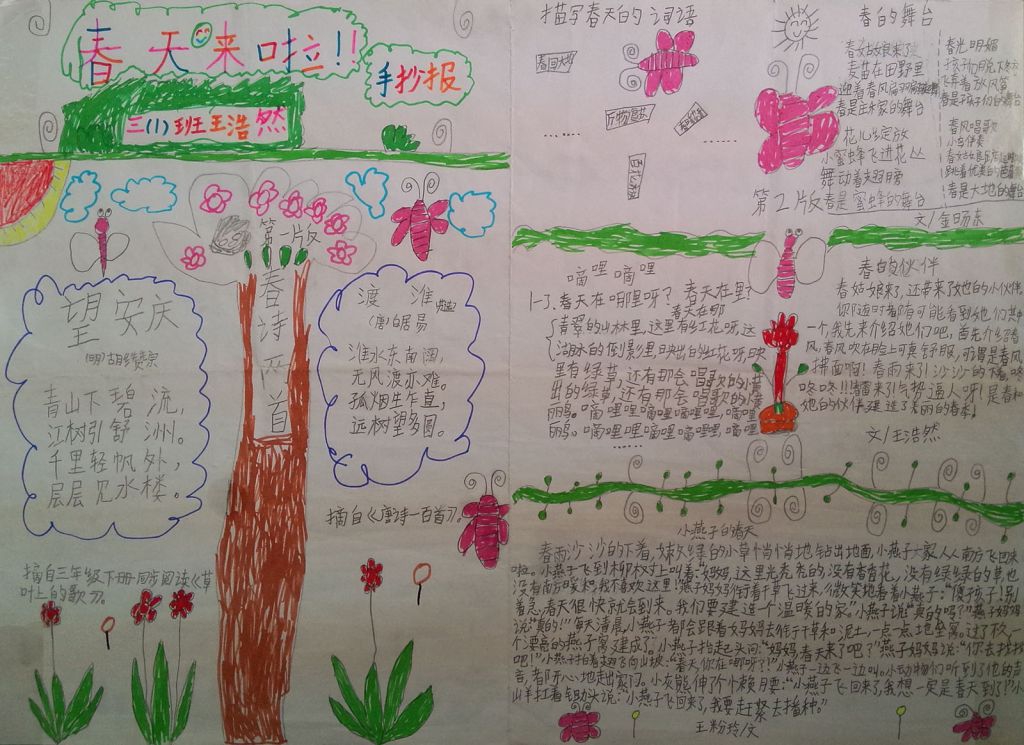 春天来啦!!
手抄报
三(1)班王浩然
第一版
春诗两首
望安庆
(明)胡缵宗
青山下碧流,
江树引舒洲。
千里轻帆外,
层层见水楼。
摘自三年级下册同步阅读《草
叶上的歌》。
渡淮
(唐)白居易
淮水东南阔,
无风渡亦难。
孤烟生乍直,
远树望多圆。
摘自《唐诗一百首》。
描写春天的词语
春回大地
万物复苏
百花
......
......
第2版
春的舞台
春姑娘来了
麦苗在田野里
迎着春风
春是庄家的舞台
花儿绽放
小蜜蜂飞进花丛
舞动着翅膀
春是蜜蜂的舞台
春光明媚
孩子们
放风筝
春是孩子们的舞台
春风唱歌
小鸟伴奏
春姑娘
跳着优美的
春是大地的舞台
文/金旸东
嘀哩嘀哩
1-3.春天在哪里呀?春天在
青翠的山林里,这里有红花呀,这
湖水的倒影里,映出的红花呀,映
里有绿草,还有那会唱歌的小黄
出的绿草,还有那会唱歌的小黄
鹂。嘀哩哩嘀哩嘀哩哩,嘀哩哩
鹂。嘀哩哩嘀哩嘀哩哩,嘀哩哩
......
春的伙伴
春姑娘来了,还带来了她的小伙伴。
你随时都有可能看到她们其中
一个,我先来介绍她们吧,首先介绍春
风,春风吹在脸上可真舒服,可谓是春风
拂面啊!春雨来了!沙沙的下着。咯
咯咚!!!春雷来!气势逼人呀!是春和
她的伙伴,建造了美丽的春季!
文/王浩然
小燕子的春天
春雨沙沙的下着,嫩绿的小草悄悄地钻出地面,小燕子一家人从南方飞回来
啦。小燕子飞到柳树上叫着:"妈妈,这里光秃秃的,没有香香花,没有绿绿的草,也
没有南方暖和,我不喜欢这里!"燕子妈妈衔着干草飞过来,微笑地看着小燕子:"傻孩子!别
着急,春天很快就会到来。我们要建造一个温暖的家。"小燕子说:"真的吗?"燕子妈妈
说:"真的!"每天清晨,小燕子都会跟着妈妈去衔干草和泥土,一点一点地垒窝。过了
个漂亮的燕子窝建成了。小燕子抬起头问:"妈妈,春天来了吧?"燕子妈妈说:"你去找找
吧!"小燕子拍着翅飞向山坡:"春天你在哪呀?"小燕子一边飞一边叫。小动物们听到了他的声
音,都开心地走出家门。小灰熊伸了个懒腰:"小燕子飞回来了,我想一定是春天到了!"小
山羊扛着锄头说:"小燕子飞回来了,我要赶紧去播种。"
王粉玲/文